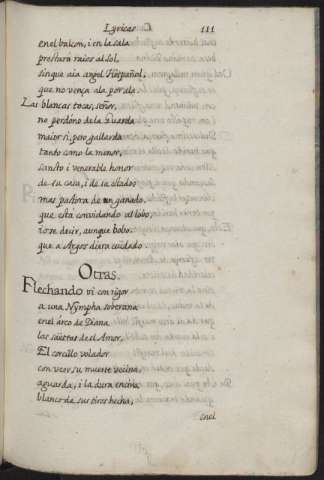 Lyricas. 111
en el balcon, i en la sala
prestarà raios al sol,
sin que aia angel Hespañol,
que no vença ala por ala.
Las blancas tocas, señor,
no perdòno de la Guarda
maior si, pero gallarda
tanto como la menor,
sancto i venerable honor
de su casa, i de su estado:
mas pastora de un ganado,
que està convidando al lobo,
io se decir, aunque bobo,
que a Argos diera cuidado
Otras.
Flechando vi con rigor
a una Nympha soberana
en el arco de Diana
las saëtas de el Amor,
El corcillo volador
con veer su muerte vecina,
aguarda, i la dura encina
blanco de sus tiros hecha,
enel